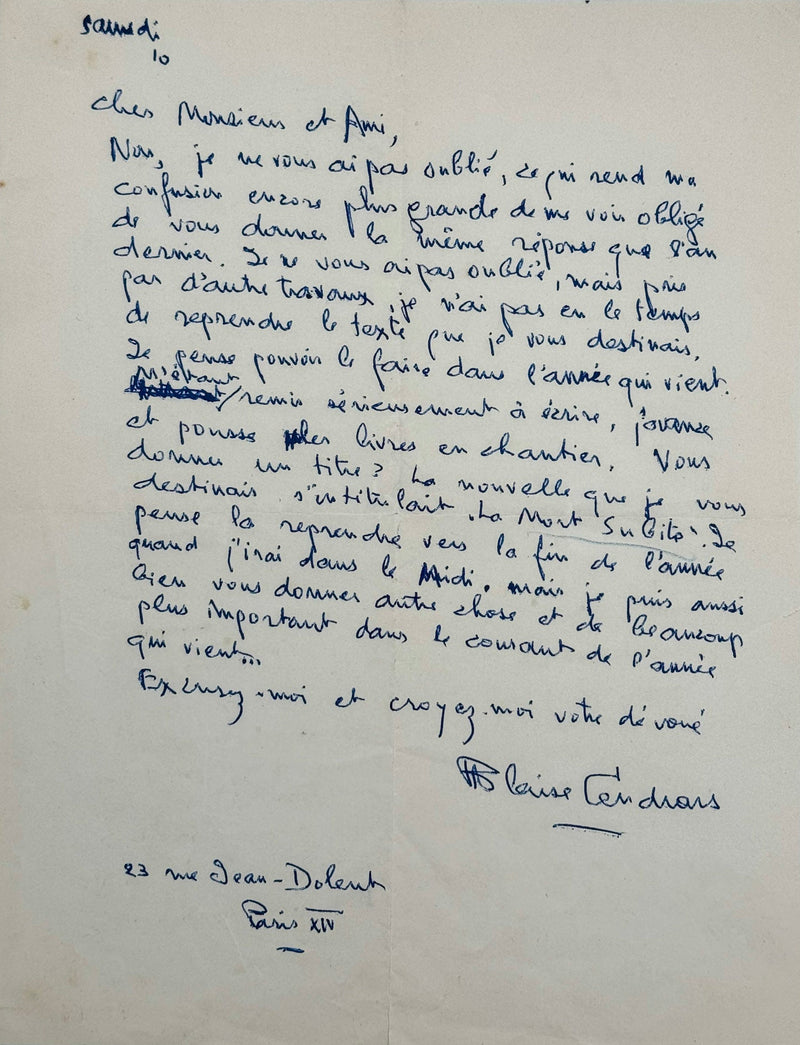 samedi
10
Cher Monsieur et Ami,
Non, je ne vous ai pas oublié, ce qui rend ma
confusion encore plus grande de me voir obligé
de vous donner la même réponse que l'an
dernier. Je ne vous ai pas oublié, mais pris
par d'autre travaux, je n'ai pas eu le temps
de reprendre le texte que je vous destinais.
Je pense pouvoir le faire dans l'année qui vient.
M'étant
remis sérieusement à écrire, j'avance
et pousse les livres en chantier. Vous
donner un titre? La nouvelle que je vous
destinais s'intitulait "La Mort Subite". Je
pense la reprendre vers la fin de l'année
quand j'irai dans le Midi. mais je puis aussi
bien vous donner autre chose et de beaucoup
plus important dans le courant de l'année
qui vient...
Excusez-moi et croyez-moi votre dévoué
Blaise Cendrars
23 rue Jean-Dolent
Paris XIV